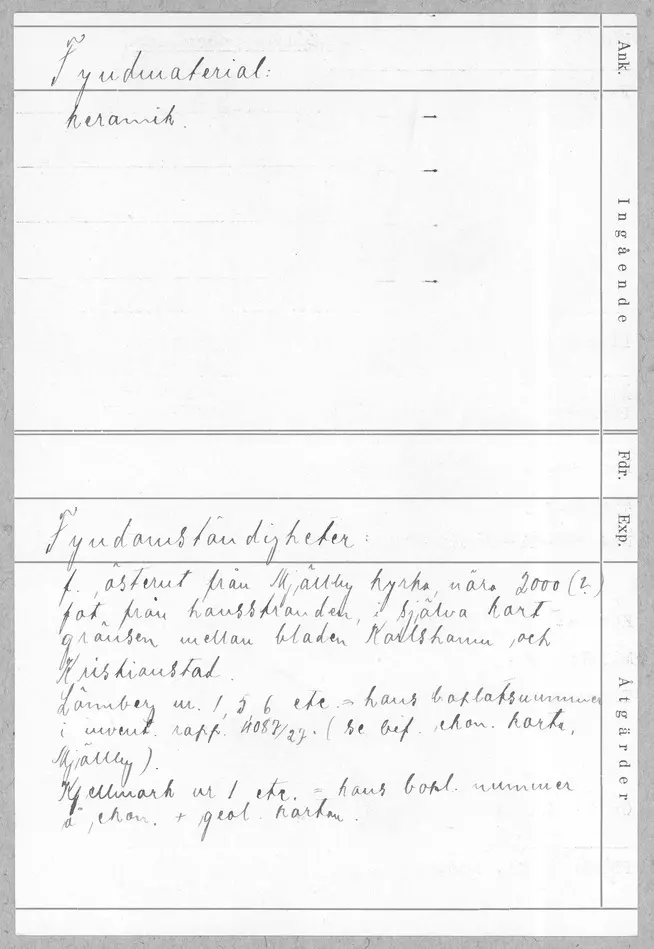 Fyndmaterial:
Ank.
keramik.
Ingående
Fdr.
Exp.
Fyndomständigheter:
f. österut från Mjällby kyrka, nära 2000 (?)
fot från havsstranden, i själva kart-
gränsen mellan bladen Karlshamn och
Kristianstad.
Lönnberg nr. 1, 5, 6 etc. = hans boplatsnummer
i invent. rapp. 4087/27. (se bif. ekon. karta,
Mjällby).
Kjellmark nr 1 etc. = hans bopl. nummer
å ekon. + geol. kartan.
Åtgärder